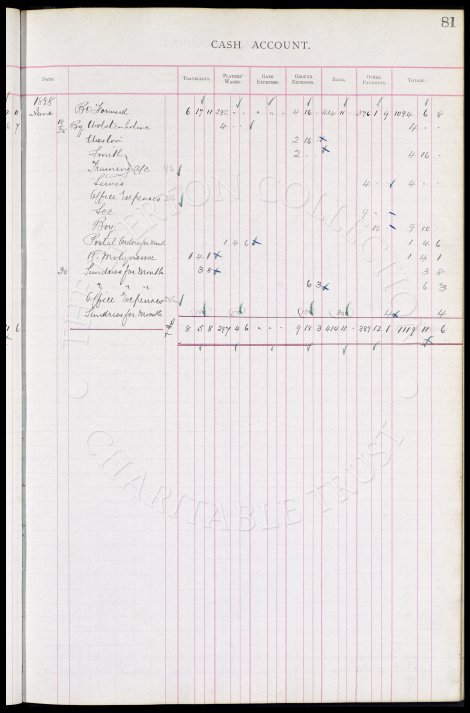 81
CASH ACCOUNT.
DATE TRAVELLING. PLAYERS' WAGES. GATE EXPENSES. GROUND EXPENSES. BANK. OTHER PAYMENTS. TOTALS.
1898
June Bt Forward 6 17 11 292 " " " " " 4 16 " 414 11 " 376 1 9 1094 6 8
By Wolstenholme 4 " " 4 " "
Weston 2 16 "
Smith 2 " " 4 16 "
Training a/c
Lewis 4 " " 4 " "
Office Expenses
Sec 9 " "
Boy 10 " 9 10 "
Postal Orders 1 4 6 1 4 6
R. Molyneux 1 4 1 1 4 1
30 Sundries for Month 3 8 3 8
" " " 6 3 6 3
Office Expenses
Sundries for Month 4 4
8 5 8 297 4 6 " " " 9 18 3 414 11 " 389 12 1 1119 11 6
THE EVERTON COLLECTION
CHARITABLE TRUST